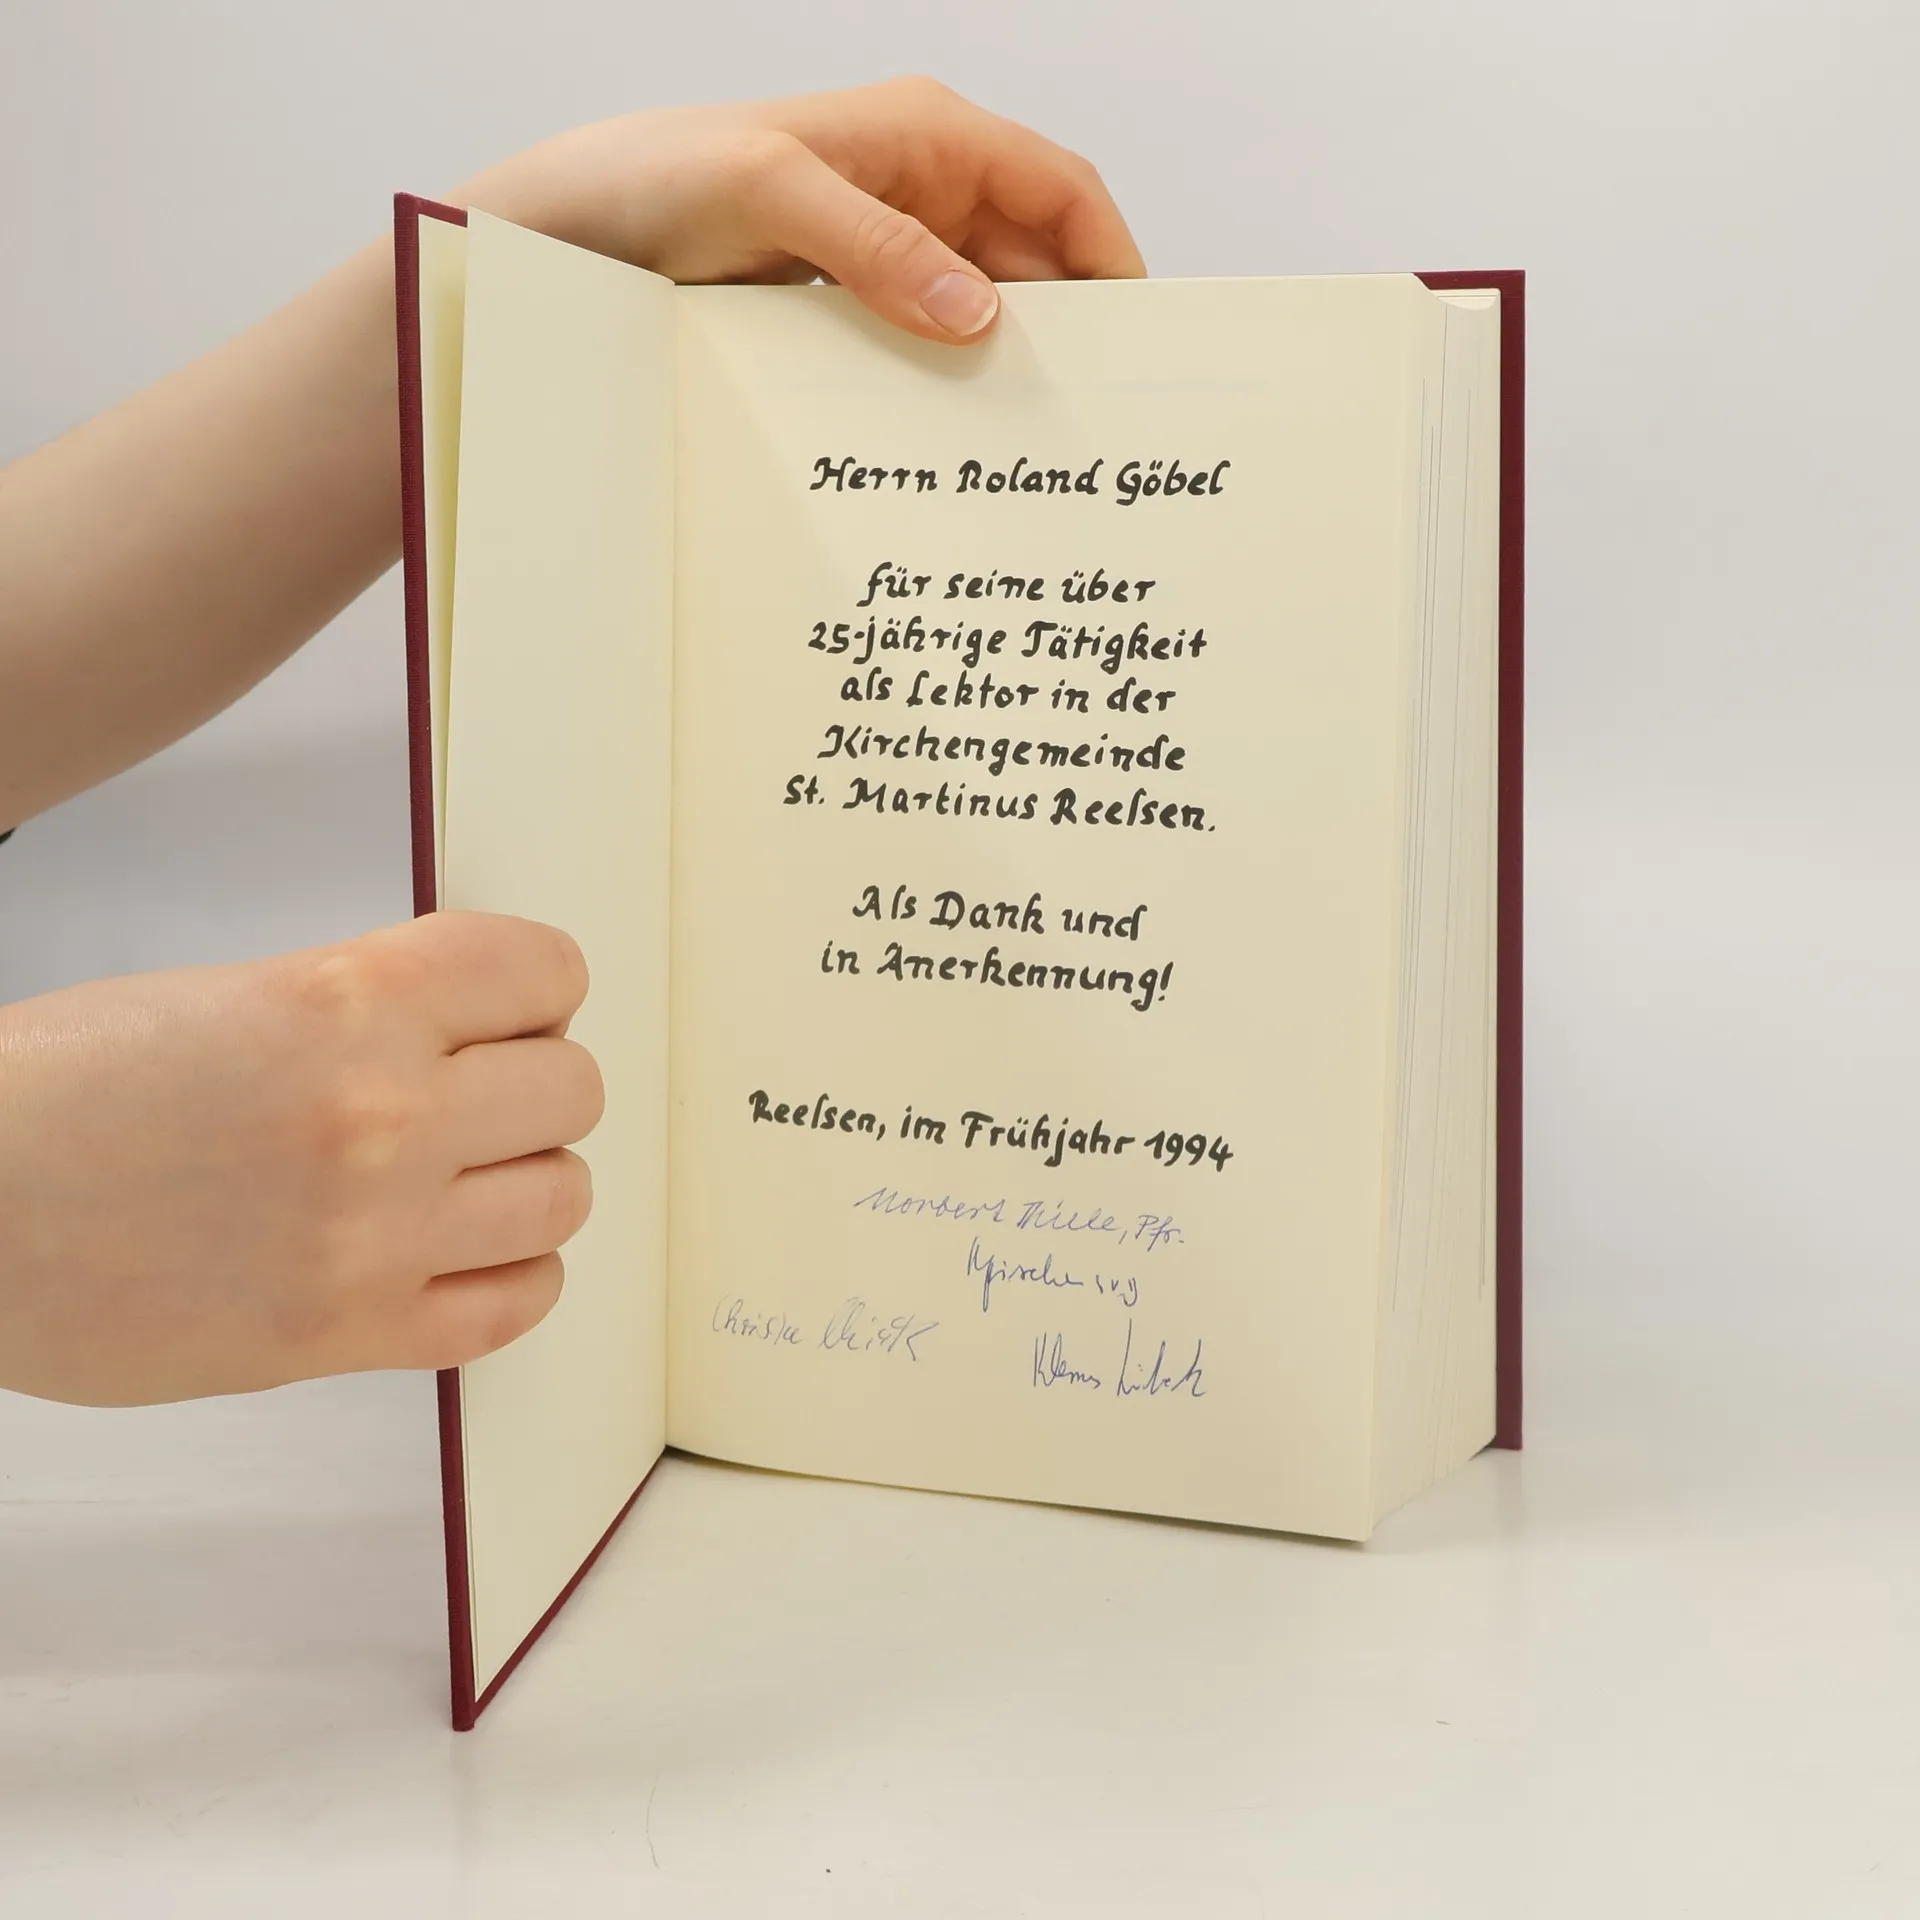 Herrn Roland Göbel
für seine über
25-jährige Tätigkeit
als Lektor in der
Kirchengemeinde
St. Martinus Reelsen.
Als Dank und
in Anerkennung!
Reelsen, im Frühjahr 1994
Norbert Thiele, Pfr.